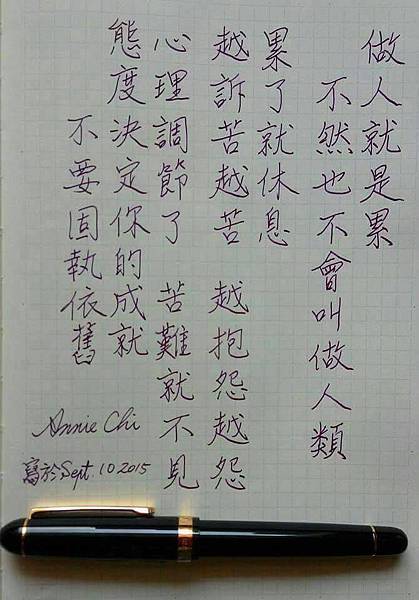 做人就是累
不然也不會叫做人類
累了就休息
越訴苦越苦 越抱怨越怨
心理調節了 苦難就不見
態度決定你的成就
不要固執依舊
Annie Chi
寫於Sept. 10 2015